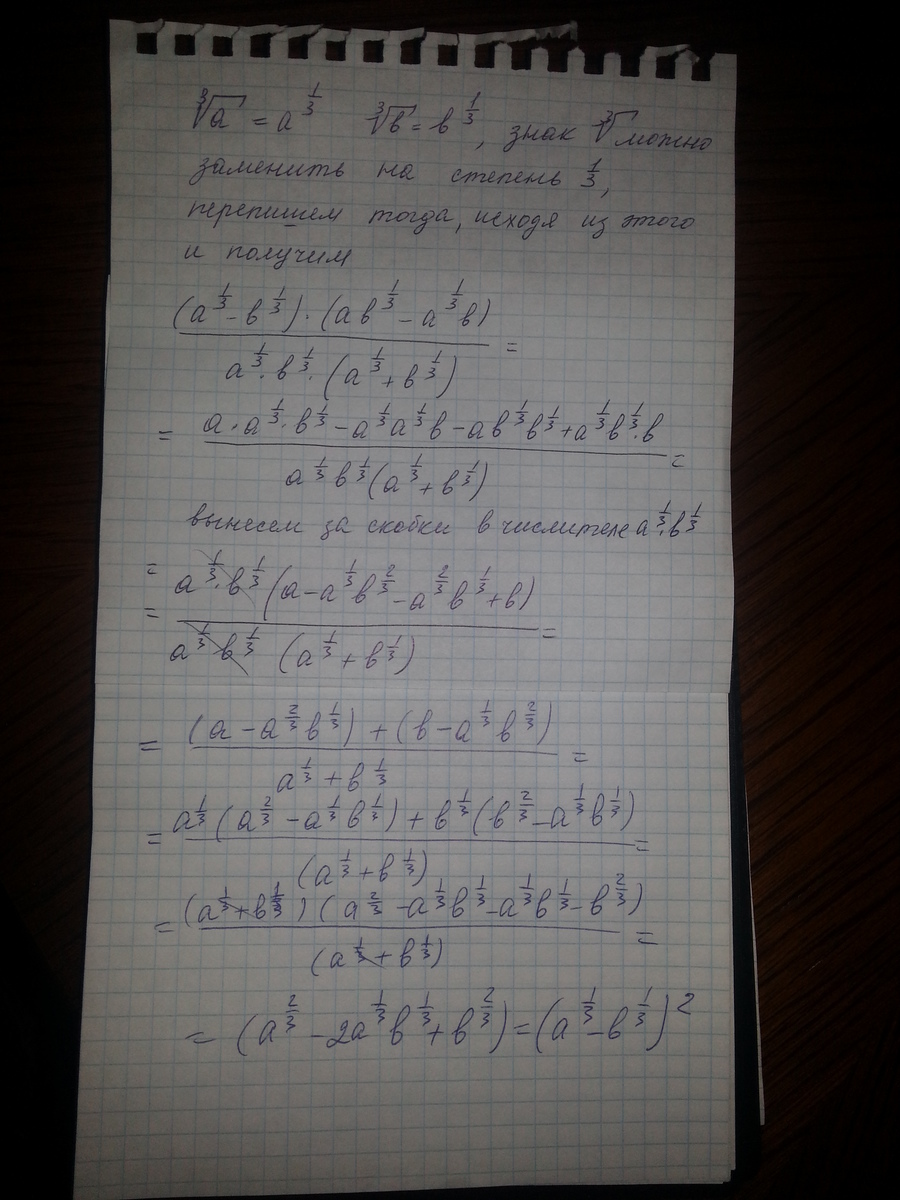 ∛a = a^(1/3) ∛в = в^(1/3), знак ∛ можно
заменить на степень 1/3,
перепишем тогда, исходя из этого
и получим
((a^(1/3) - в^(1/3)) · (aв^(1/3) - a^(1/3)в)) / (a^(1/3) · в^(1/3) · (a^(1/3) + в^(1/3))) =
= (a · a^(1/3) · в^(1/3) - a^(1/3)a^(1/3)в - aв^(1/3)в^(1/3) + a^(1/3)в^(1/3) · в) / (a^(1/3)в^(1/3)(a^(1/3) + в^(1/3))) =
вынесем за скобки в числителе a^(1/3) · в^(1/3)
= = (a^(1/3) · в^(1/3)(a - a^(1/3)в^(2/3) - a^(2/3)в^(1/3) + в)) / (a^(1/3)в^(1/3) (a^(1/3) + в^(1/3))) =
= ((a - a^(2/3)в^(1/3)) + (в - a^(1/3)в^(2/3))) / (a^(1/3) + в^(1/3)) =
= (a^(1/3)(a^(2/3) - a^(1/3)в^(1/3)) + в^(1/3)(в^(2/3) - a^(1/3)в^(1/3))) / (a^(1/3) + в^(1/3)) =
= ((a^(1/3) + в^(1/3))(a^(2/3) - a^(1/3)в^(1/3) - a^(1/3)в^(1/3) - в^(2/3))) / (a^(1/3) + в^(1/3)) =
= (a^(2/3) - 2a^(1/3)в^(1/3) + в^(2/3)) = (a^(1/3) - в^(1/3))^2